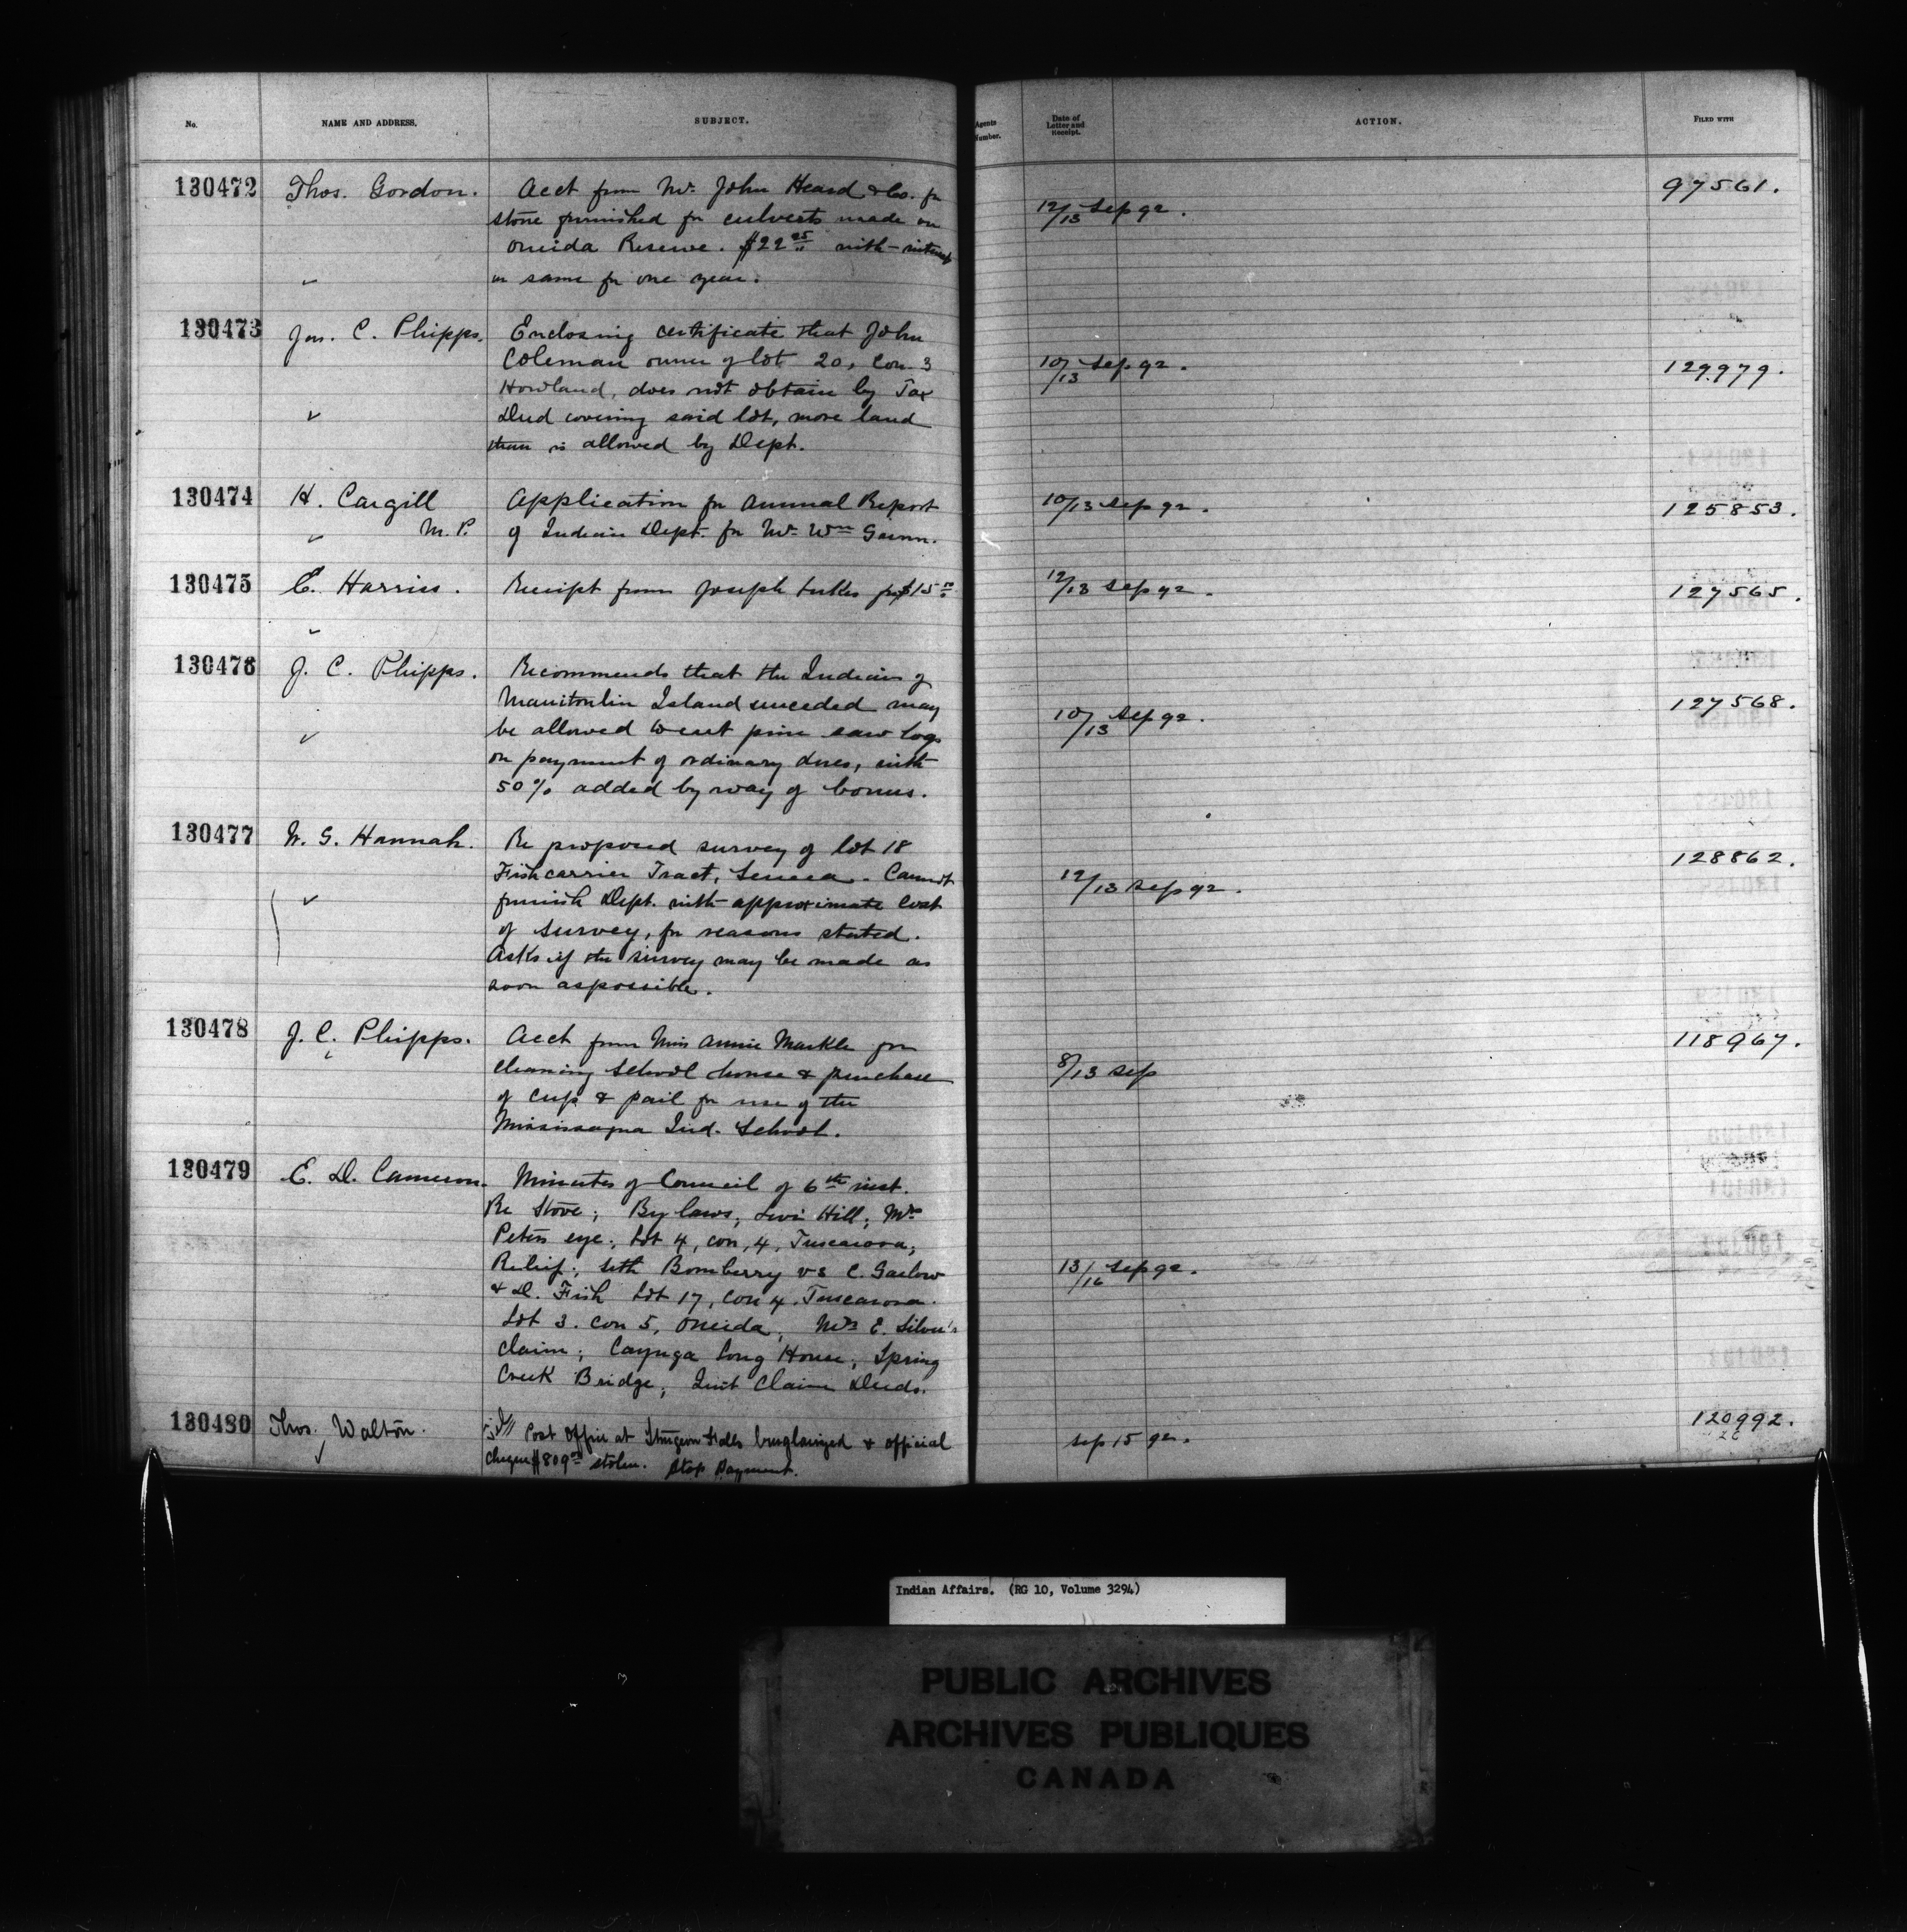 No. NAME AND ADDRESS. SUBJECT. Agents Number. Date of Letter and Receipt. ACTION. FILED WITH
130472 Thos. Gordon. Acct from Mr. John Heard & Co. for
stone furnished for culverts made on 12/13 Sep 92. 97561.
Oneida Reserve. $22 25 with interest
on same for one year.
130473 Jas. C. Phipps. Enclosing certificate that John
Coleman owner of lot 20, Con. 3 10/13 Sep 92. 129979.
Howland, does not obtain by Tax
Deed covering said lot, more land
than is allowed by Dept.
130474 H. Cargill Application for Annual Report 10/13 Sep 92. 125853.
M.P. of Indian Dept. for Mr. Wm
130475 C. Harris. Receipt from Joseph for $15 12/13 Sep 92. 127565.
130476 J. C. Phipps. Recommends that the Indians of
Manitoulin Island unceded may 10/13 Sep 92. 127568.
be allowed to cut pine saw logs
on payment of ordinary dues, with
50% added by way of bonus.
130477 W. G. Hannah. Re proposed survey of lot 18 128862.
Fishcarrier Tract, Seneca - Cannot 12/13 Sep 92.
furnish Dept. with approximate cost
of survey, for reasons stated.
Asks if the survey may be made as
soon as possible.
130478 J. C. Phipps. Acct from Miss Annie Markle for 118967.
cleaning school house & purchase 8/13 Sep
of cup & pail for use of the
Mississagua Ind. School.
130479 E. D. Cameron. Minutes of Council of 6th inst.
Re Stove; By laws; Levi Hill; Mrs
Peters eye; Lot 4, con, 4, Tuscarora;
Relief; Seth Bomberry vs C. Garlow 13/16 Sep 92.
& D. Fish Lot 17, Con 4. Tuscarora.
Lot 3. Con 5, Oneida, Mrs E. Silver's
claim; Cayuga Long House; Spring
Creek Bridge; Quit Claim Deeds.
130480 Thos. Walton. Post Office at Sturgeon Falls burglarized & official Sep 15 92. 120992.
cheque $809 stolen. Stop Payment.
Indian Affairs. (RG 10, Volume 3294)
PUBLIC ARCHIVES
ARCHIVES PUBLIQUES
CANADA